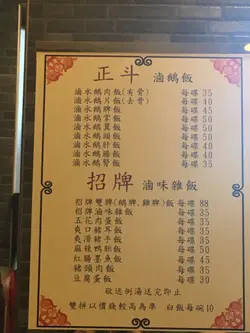 正斗 滷鵝飯
滷水鵝肉飯(有骨) 每碟 35
滷水鵝片飯(去骨) 每碟 40
滷水鵝脾飯 每碟 45
滷水鵝掌飯 每碟 50
滷水鵝翼飯 每碟 50
滷水鵝頭飯 每碟 50
滷水鵝肝飯 每碟 40
滷水鵝腸飯 每碟 50
滷水鵝腎飯 每碟 35
招牌 滷味雜飯
招牌雙脾(鵝脾,雞脾)飯 每碟 88
招牌滷味雜飯 每碟 35
五花肉蛋飯 每碟 35
爽口豬耳飯 每碟 35
爽滑豬手飯 每碟 35
麻辣鴨胗飯 每碟 50
紅腸墨魚飯 每碟 35
豬頭肉飯 每碟 35
豆腐蛋飯 每碟 30
敬送例湯送完即止
雙拼以價錢較高為準 白飯每碗10